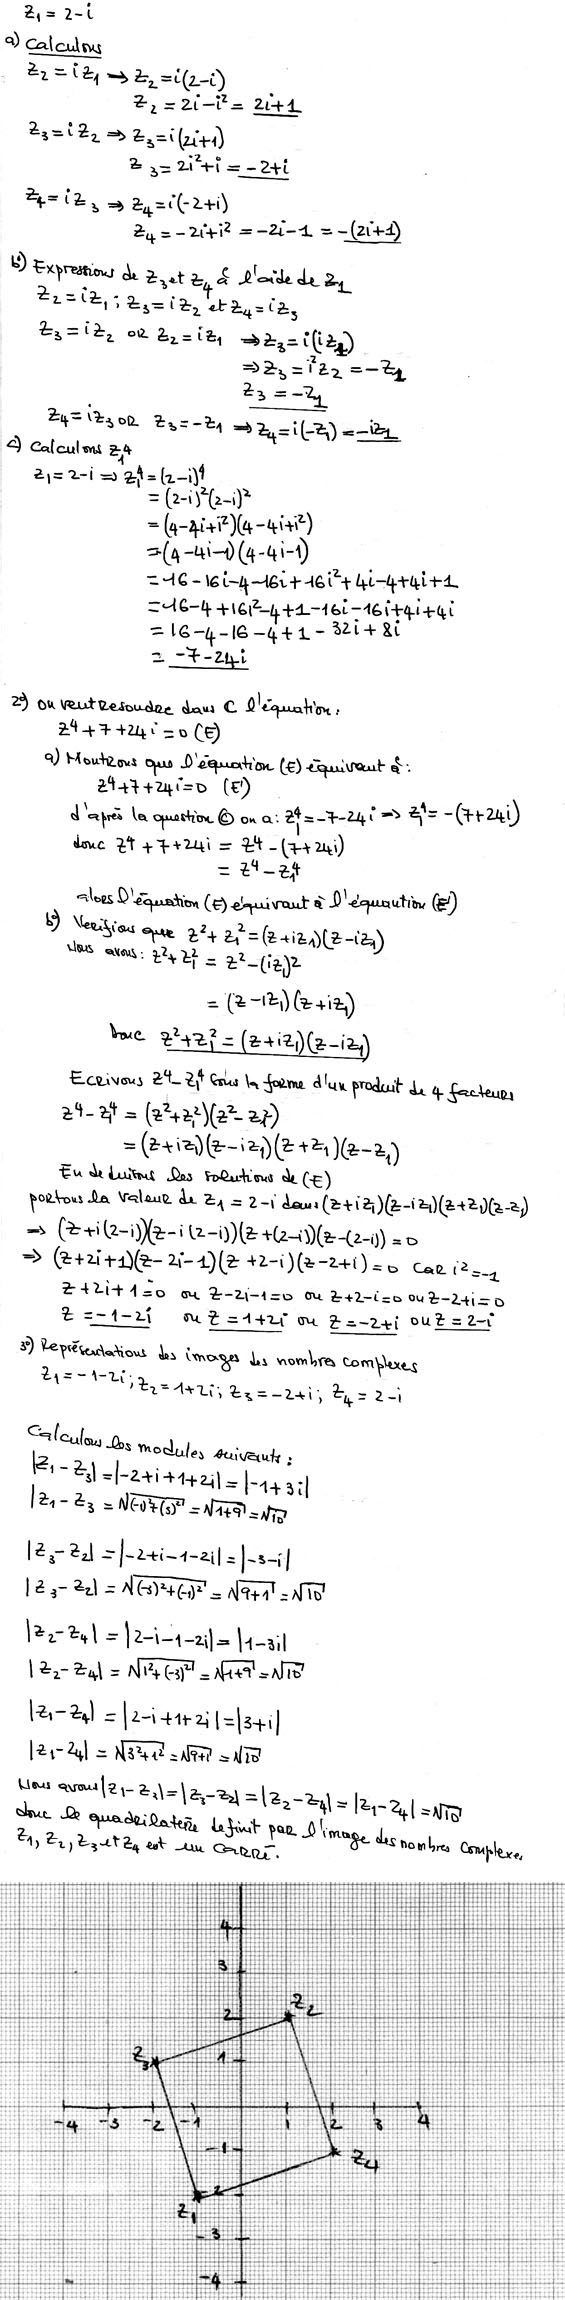 z₁ = 2-i
a) Calculons
z₂ = i z₁ → z₂ = i(2-i)
z₂ = 2i-i² = 2i+1
z₃ = i z₂ ⇒ z₃ = i(2i+1)
z₃ = 2i²+i = -2+i
z₄ = i z₃ ⇒ z₄ = i(-2+i)
z₄ = -2i+i² = -2i-1 = -(2i+1)
b) Expressions de z₃ et z₄ à l'aide de z₁
z₂ = iz₁ ; z₃ = iz₂ et z₄ = iz₃
z₃ = iz₂ OR z₂ = iz₁ ⇒ z₃ = i(iz₁)
⇒ z₃ = i²z₂ = -z₁
z₃ = -z₁
z₄ = iz₃ OR z₃ = -z₁ ⇒ z₄ = i(-z₁) = -iz₁
c) Calculons z₁⁴
z₁ = 2-i ⇒ z₁⁴ = (2-i)⁴
= (2-i)²(2-i)²
= (4-4i+i²)(4-4i+i²)
= (4-4i-1)(4-4i-1)
= 16-16i-4-16i+16i²+4i-4+4i+1
= 16-4+16i²-4+1-16i-16i+4i+4i
= 16-4-16-4+1-32i+8i
= -7-24i
2°) on veut resoudre dans C l'équation:
z⁴+7+24i = 0 (E)
a) Montrons que l'équation (E) équivaut à:
z⁴+7+24i = 0 (E')
d'après la question ⓒ on a: z₁⁴ = -7-24i ⇒ z₁⁴ = -(7+24i)
donc z⁴+7+24i = z⁴-(7+24i)
= z⁴-z₁⁴
alors l'équation (E) équivaut à l'équaution (E')
b) Verifions que z²+z₁² = (z+iz₁)(z-iz₁)
Nous avons: z²+z₁² = z²-(iz₁)²
= (z-iz₁)(z+iz₁)
Donc z²+z₁² = (z+iz₁)(z-iz₁)
Ecrivons z⁴-z₁⁴ sous la forme d'un produit de 4 facteurs
z⁴-z₁⁴ = (z²+z₁²)(z²-z₁²)
= (z+iz₁)(z-iz₁)(z+z₁)(z-z₁)
En deduisons les solutions de (E)
portons la valeur de z₁ = 2-i dans (z+iz₁)(z-iz₁)(z+z₁)(z-z₁)
⇒ (z+i(2-i))(z-i(2-i))(z+(2-i))(z-(2-i)) = 0
⇒ (z+2i+1)(z-2i-1)(z+2-i)(z-2+i) = 0 CAR i² = -1
z+2i+1 = 0 ou z-2i-1 = 0 ou z+2-i = 0 ou z-2+i = 0
z = -1-2i ou z = 1+2i ou z = -2+i ou z = 2-i
3°) Représentations des images des nombres complexes
z₁ = -1-2i ; z₂ = 1+2i ; z₃ = -2+i ; z₄ = 2-i
Calculons les modules suivants:
|z₁-z₃| = |-2+i+1+2i| = |-1+3i|
|z₁-z₃ = √(-1)²+(3)² = √1+9 = √10
|z₃-z₂| = |-2+i-1-2i| = |-3-i|
|z₃-z₂| = √(-3)²+(-1)² = √9+1 = √10
|z₂-z₄| = |2-i-1-2i| = |1-3i|
|z₂-z₄| = √1²+(-3)² = √1+9 = √10
|z₁-z₄| = |2-i+1+2i| = |3+i|
|z₁-z₄| = √3²+1² = √9+1 = √10
Nous avons |z₁-z₃| = |z₃-z₂| = |z₂-z₄| = |z₁-z₄| = √10
donc le quadrilatère definit par l'image des nombres complexes
z₁, z₂, z₃ et z₄ est un CARRÉ.
4
3
z₂
2
z₃
1
-4 -3 -2 -1 1 2 3 4
-1
z₄
-2
z₁
-3
-4